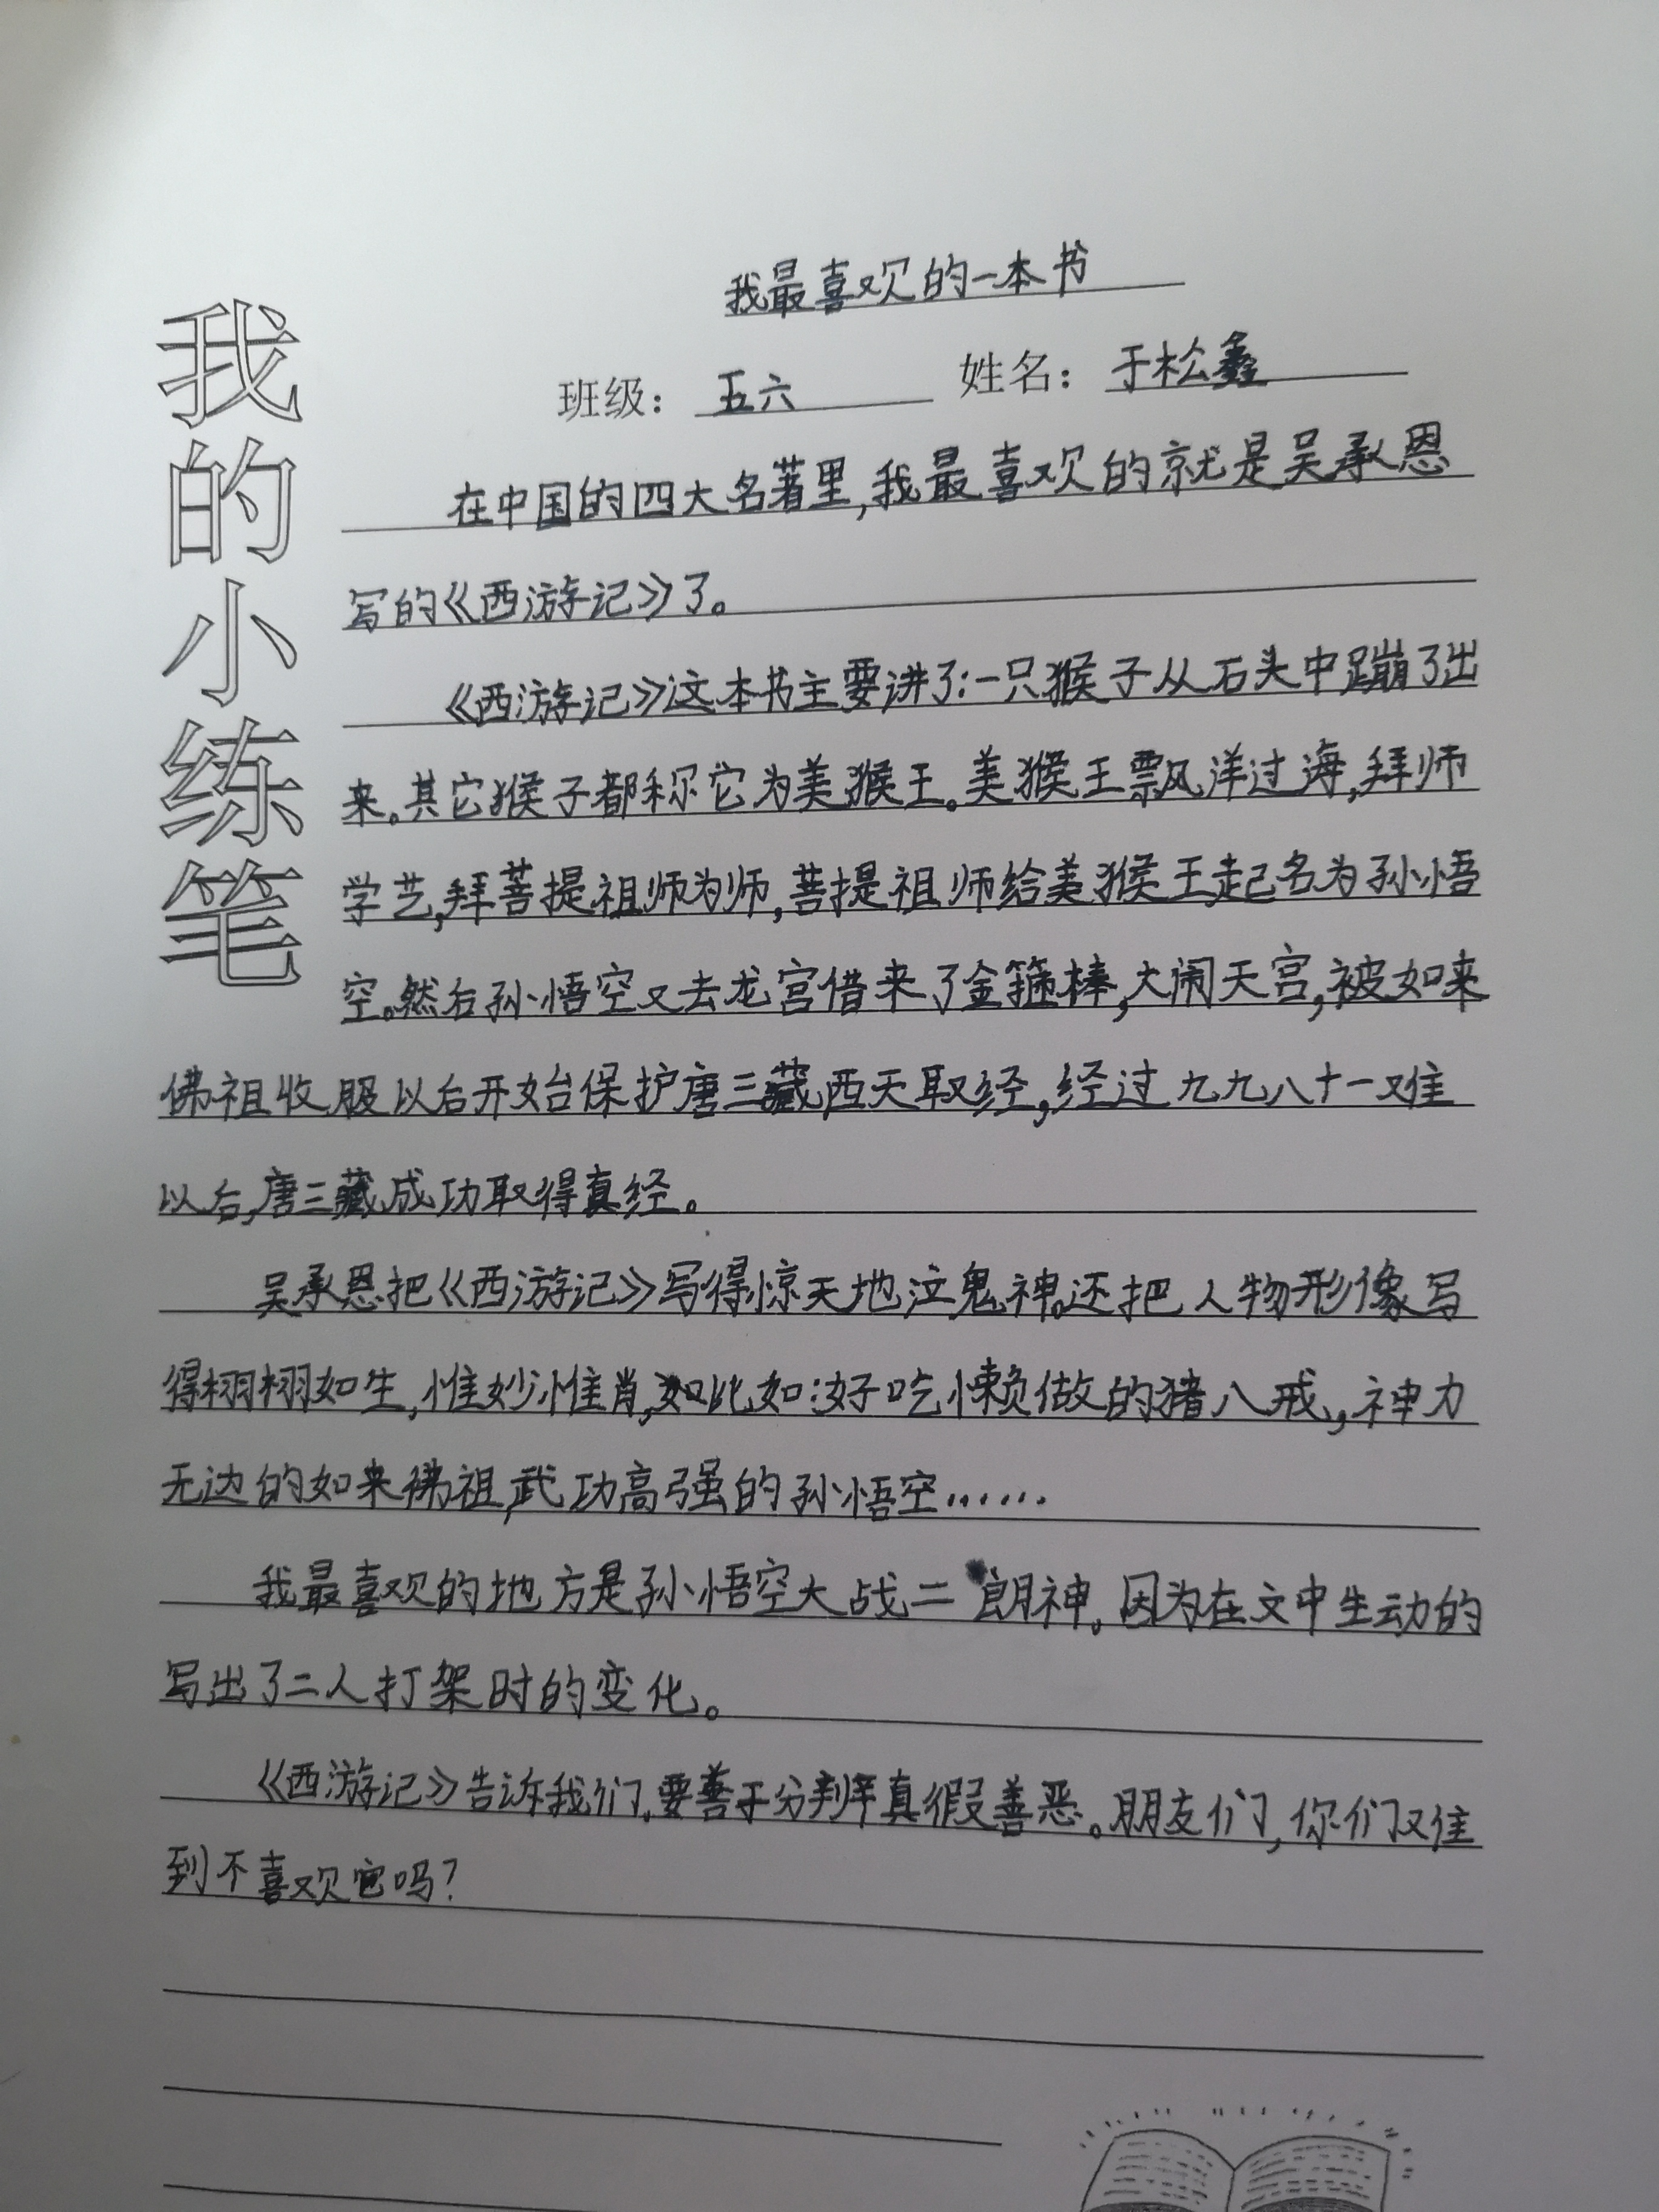 我最喜欢的一本书
我的小练笔
班级：五六 姓名：于松鑫
在中国的四大名著里,我最喜欢的就是吴承恩
写的《西游记》了。
《西游记》这本书主要讲了:一只猴子从石头中蹦了出
来。其它猴子都称它为美猴王。美猴王飘洋过海,拜师
学艺,拜菩提祖师为师,菩提祖师给美猴王起名为孙悟
空。然后孙悟空又去龙宫借来了金箍棒,大闹天宫,被如来
佛祖收服以后开始保护唐三藏西天取经,经过九九八十一难
以后,唐三藏成功取得真经。
吴承恩把《西游记》写得惊天地泣鬼神。还把人物形像写
得栩栩如生,惟妙惟肖,如比如:好吃懒做的猪八戒,神力
无边的如来佛祖,武功高强的孙悟空……
我最喜欢的地方是孙悟空大战二朗神。因为在文中生动的
写出了二人打架时的变化。
《西游记》告诉我们,要善于分辨真假善恶。朋友们,你们难
到不喜欢它吗?